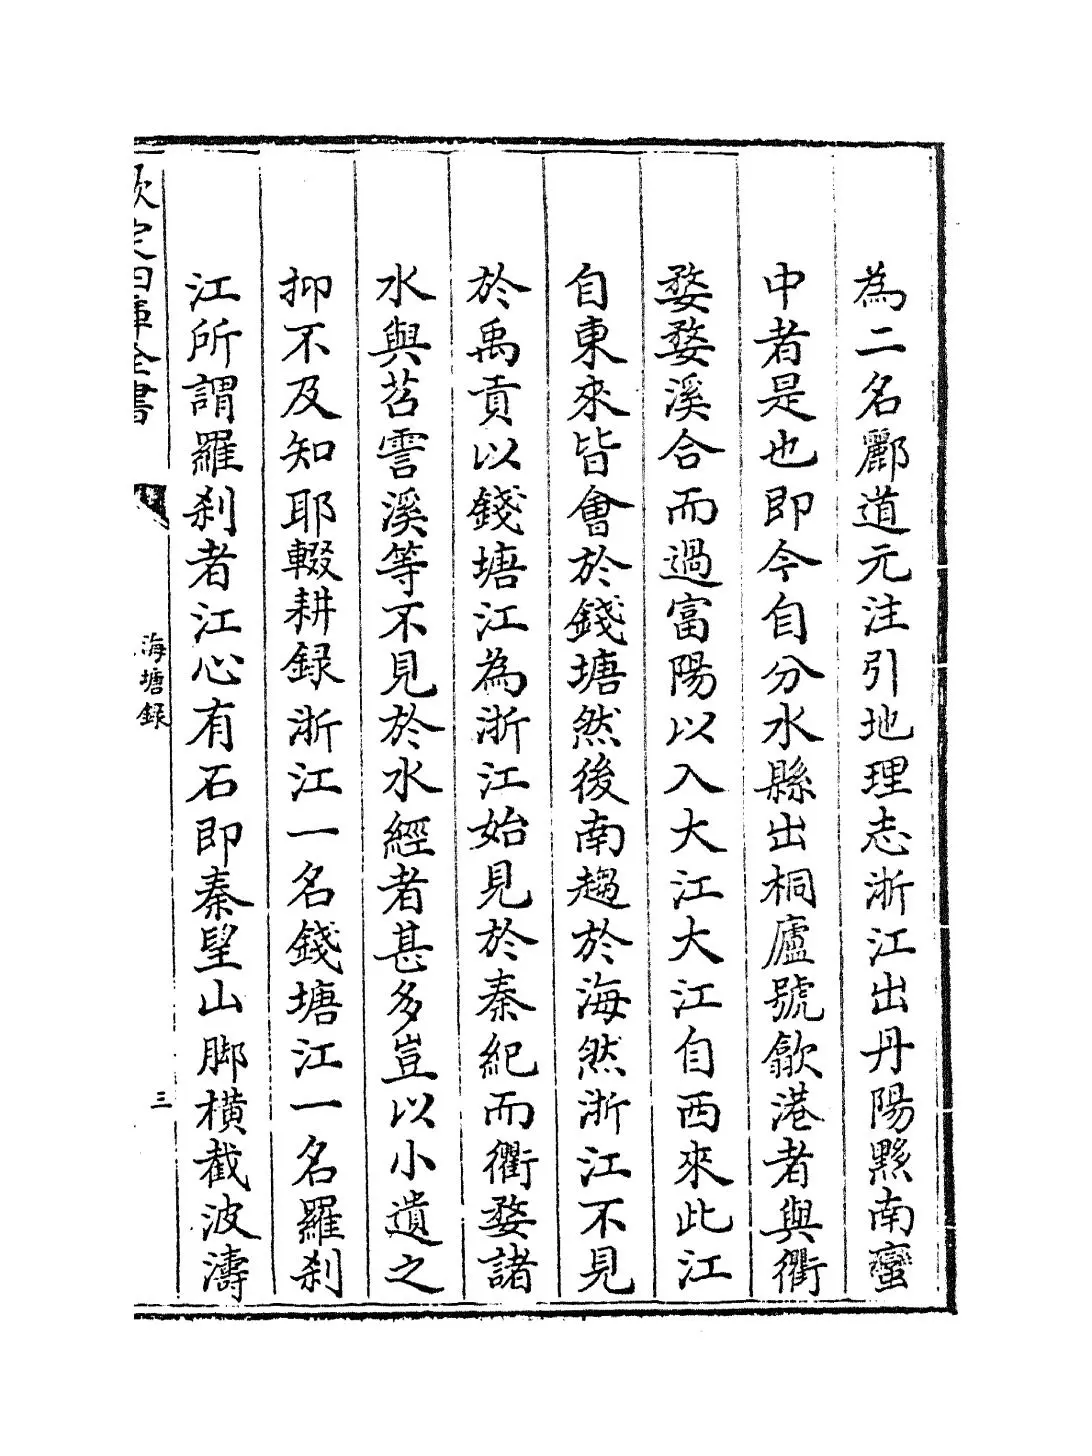 為二名酈道元注引地理志浙江出丹陽黟南蠻
中者是也即今自分水縣出桐廬號歙港者與衢
婺婺溪合而過富陽以入大江大江自西來此江
自東來皆會於錢塘然後南趨於海然浙江不見
於禹貢以錢塘江為浙江始見於秦紀而衢婺諸
水與苕霅溪等不見於水經者甚多豈以小遺之
抑不及知耶輟耕録浙江一名錢塘江一名羅刹
江所謂羅刹者江心有石即秦望山脚橫截波濤
欽定四庫全書
海塘錄
三